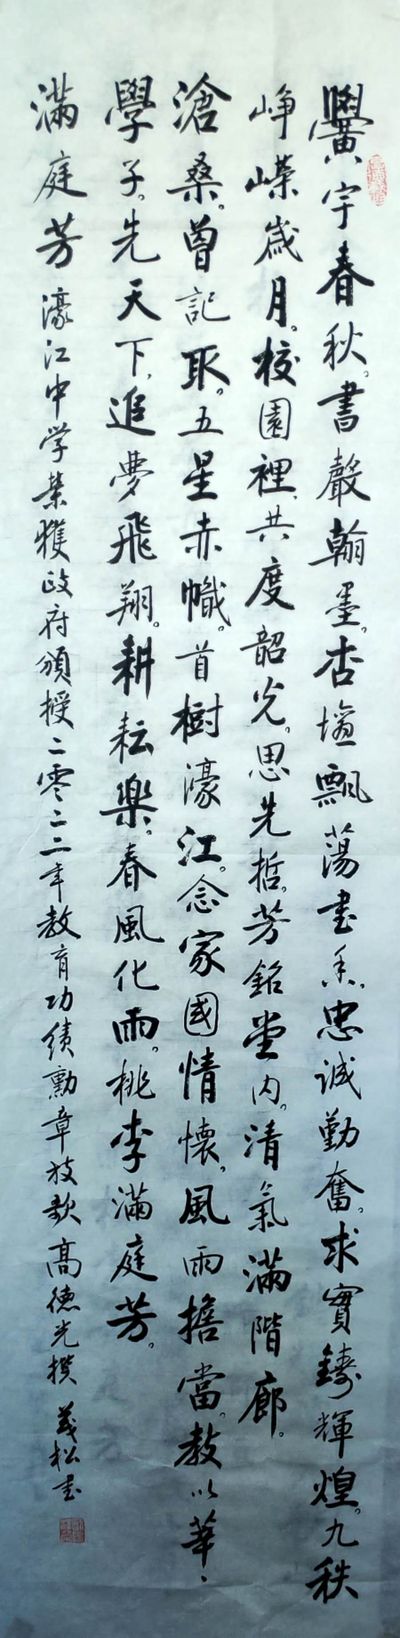 黌宇春秋。書聲翰墨。杏壇飄蕩書香。忠誠勤奮。求實鑄輝煌。九秩
崢嶸歲月。校園裡、共度韶光。思先哲。芳銘堂内。清氣滿階廊。
滄桑。曾記取。五星赤幟。首樹濠江。念家國情懷。風雨擔當。教以華、
學子。先天下、追夢飛翔。耕耘樂。春風化雨。桃李滿庭芳。
滿庭芳 濠江中学榮獲政府頒授二零二二年教育功績勳章放歌 高德光撰 義松书